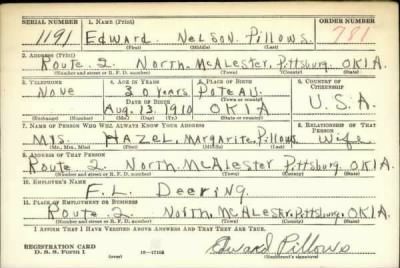 SERIAL NUMBER 1. NAME (Print) ORDER NUMBER
1191 Edward Nelson Pillows 781
(First) (Middle) (Last)
2. ADDRESS (Print)
Route 2 North McAlester, Pittsburg OKLA.
(Number and street or R. F. D. number) (Town) (County) (State)
3. TELEPHONE 4. AGE IN YEARS 5. PLACE OF BIRTH 6. COUNTRY OF CITIZENSHIP
None 30 years Poteau
DATE OF BIRTH (Town or county)
Aug. 13, 1910 OKLA U.S.A.
(Mo.) (Day) (Yr.) (State or country)
7. NAME OF PERSON WHO WILL ALWAYS KNOW YOUR ADDRESS 8. RELATIONSHIP OF THAT PERSON
Mrs. Hazel, Margarite, Pillows Wife
(Mr., Mrs., Miss) (First) (Middle) (Last)
9. ADDRESS OF THAT PERSON
Route 2 North McAlester Pittsburg OKLA.
(Number and street or R. F. D. number) (Town) (County) (State)
10. EMPLOYER'S NAME
F. L. Deering
11. PLACE OF EMPLOYMENT OR BUSINESS
Route 2 North McAlester Pittsburg OKLA
(Number and street or R. F. D. number) (Town) (County) (State)
I AFFIRM THAT I HAVE VERIFIED ABOVE ANSWERS AND THAT THEY ARE TRUE.
REGISTRATION CARD Edward Pillows
D. S. S. Form 1 (over) (Registrant's signature)